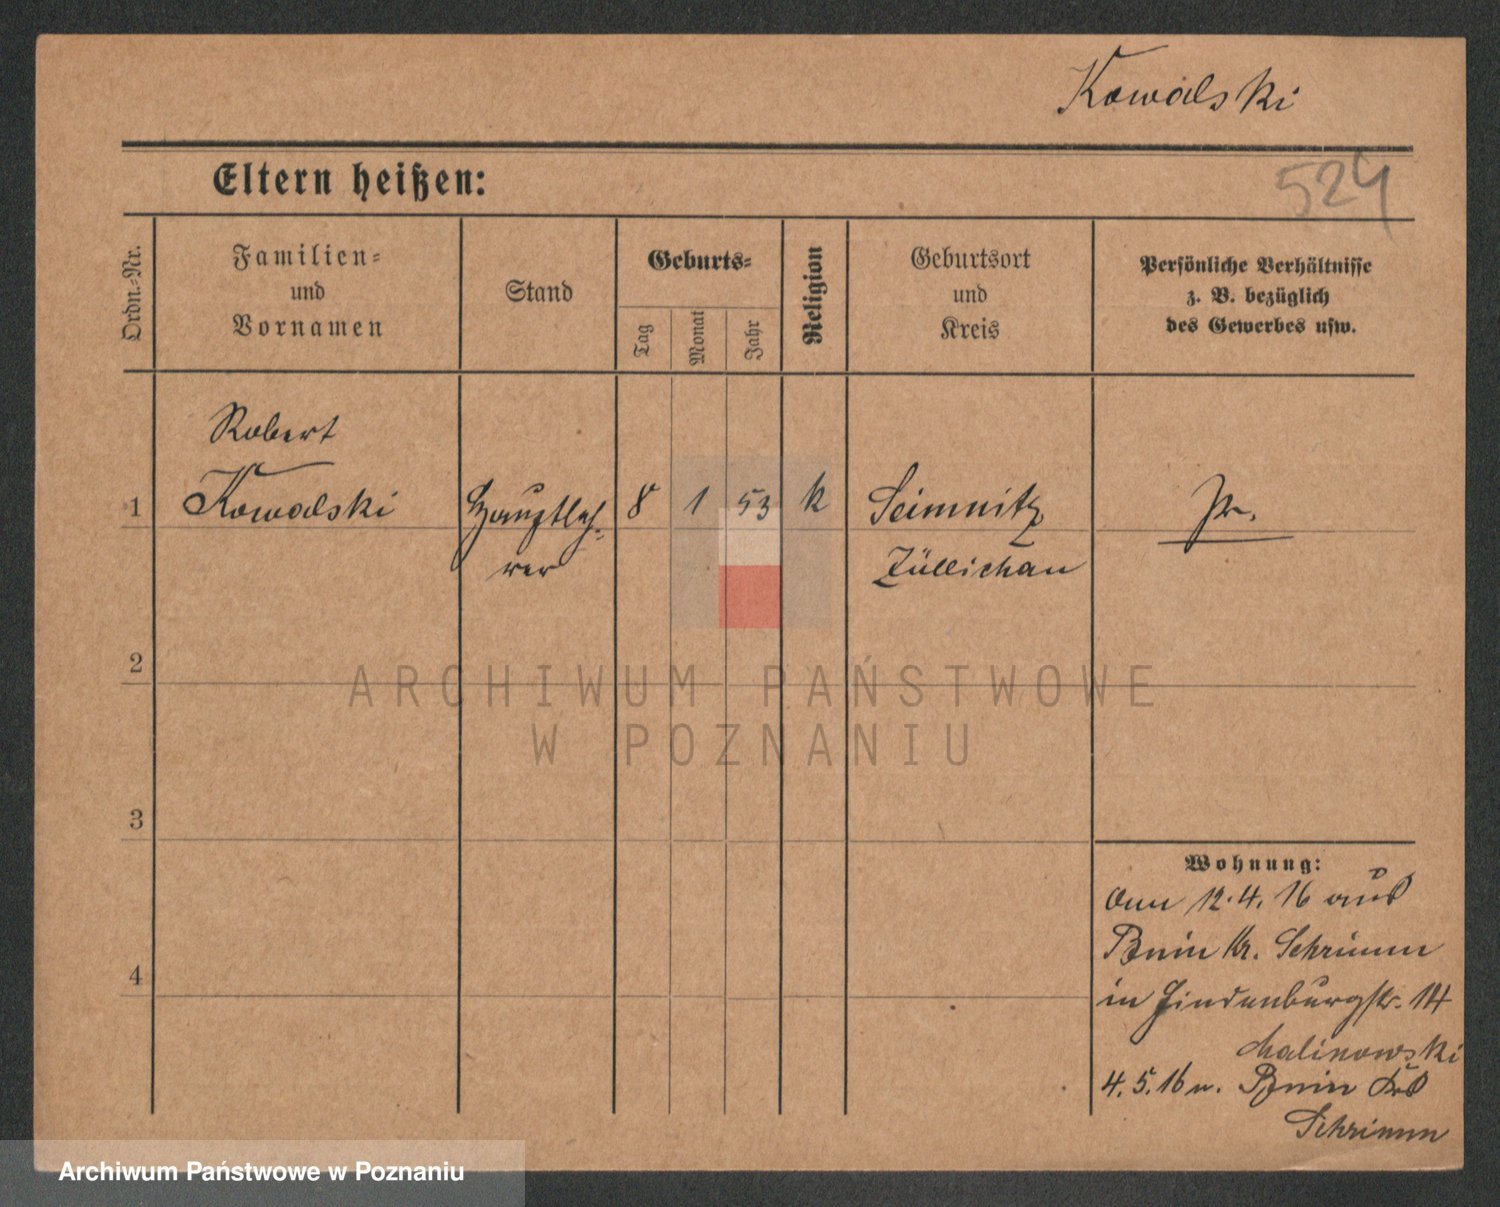 Kowalski
524
Eltern heißen:
Ordn.-Nr.
Familien-
und
Vornamen
Stand
Geburts-
Tag
Monat
Jahr
Religion
Geburtsort
und
Kreis
Persönliche Verhältnisse
z. B. bezüglich
des Gewerbes usw.
Robert
1 Kowalski Hauptleh- 8 1 53 k Seimnitz Pr.
rer Züllichau
2
ARCHIWUM PAŃSTWOWE
W POZNANIU
3
Wohnung:
12.4.16 aus
Bnin Kr. Schrimm
4
in Hindenburgstr. 14
Malinowski
4.5.16 n. Bnin Krs
Schrimm
Archiwum Państwowe w Poznaniu